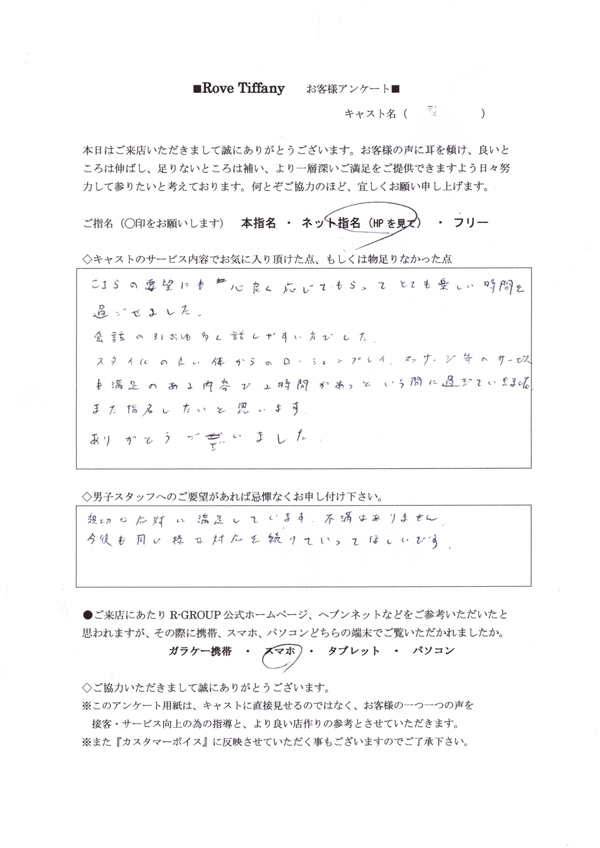 ■Rove Tiffany　お客様アンケート■
キャスト名（　　　）
本日はご来店いただきまして誠にありがとうございます。お客様の声に耳を傾け、良いと
ころは伸ばし、足りないところは補い、より一層深いご満足をご提供できますよう日々努
力して参りたいと考えております。何とぞご協力のほど、宜しくお願い申し上げます。
ご指名（〇印をお願いします）　本指名　・　ネット指名（HPを見て）　・　フリー
◇キャストのサービス内容でお気に入り頂けた点、もしくは物足りなかった点
こちらの要望にも心良く応じてもらってとても楽しい時間を
過ごせました。
会話の引出しも多く話しやすい方でした。
スタイルの良い体からのローションプレイ、マッサージ等のサービス
も満足のある内容で2時間があっという間に過ぎていました。
また指名したいと思います。
ありがとうございました。
◇男子スタッフへのご要望があれば忌憚なくお申し付け下さい。
親切な応対に満足しています。不満はありません。
今後も同じ様な対応を続けていってほしいです。
●ご来店にあたり R-GROUP 公式ホームページ、ヘブンネットなどをご参考いただいたと
思われますが、その際に携帯、スマホ、パソコンどちらの端末でご覧いただかれましたか。
ガラケー携帯　・　スマホ　・　タブレット　・　パソコン
◇ご協力いただきまして誠にありがとうございます。
※このアンケート用紙は、キャストに直接見せるのではなく、お客様の一つ一つの声を
接客・サービス向上の為の指導と、より良い店作りの参考とさせていただきます。
※また『カスタマーボイス』に反映させていただく事もございますのでご了承下さい。